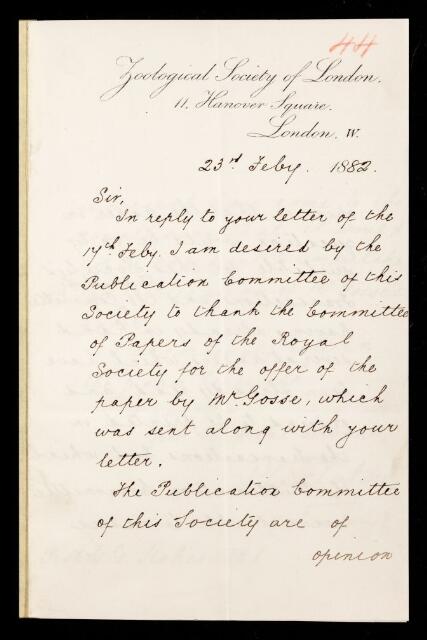 44
Zoological Society of London.
11, Hanover Square.
London. W.
23rd Feby. 1882.
Sir,
In reply to your letter of the
17th Feby. I am desired by the
Publication Committee of this
Society to thank the Committee
of Papers of the Royal
Society for the offer of the
paper by Mr. Gosse, which
was sent along with your
letter.
The Publication Committee
of this Society are of
opinion